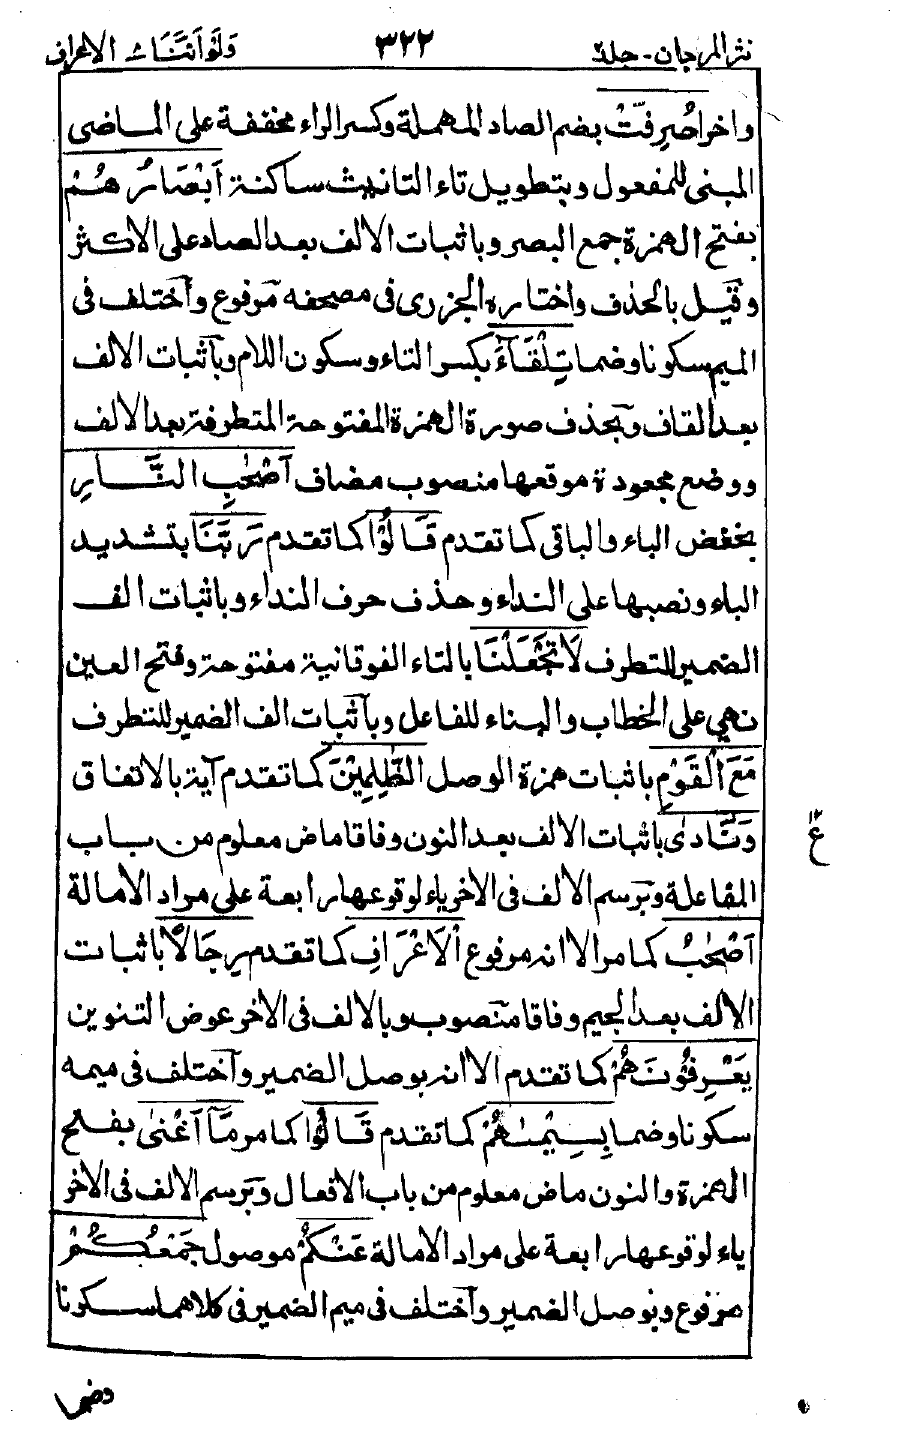 نثر المرجان - جلد ٣٢٢ ولو اننا ث الاعراف
واخرا صُرِفَتْ بضم الصاد المهملة وكسر الراء مخففة على الماضى
المبنى للمفعول وبتطويل تاء التانيث ساكنة اَبْصَارُهُمْ
بفتح الهمزة جمع البصر وباثبات الالف بعد الصاد على الاكثر
وقيل بالحذف واختاره الجزرى فى مصحفه مرفوع وآختلف فى
الميم سكونا وضما تِلْقَآءَ بكسر التاء وسكون اللام وبآثبات الالف
بعد القاف وبحذف صورة الهمزة المفتوحة المتطرفة بعد الالف
ووضع مجعودة موقعها منصوب مضاف اَصْحٰبِ النَّارِ
بخفض الباء والباقى كما تقدم قَالُوْا كما تقدم رَبَّنَا بتشديد
الباء ونصبها على النداء وحذف حرف النداء وباثبات الف
الضمير للتطرف لَا تَجْعَلْنَا بالتاء الفوقانية مفتوحة وفتح العين
نهي على الخطاب والبناء للفاعل وبآثبات الف الضمير للتطرف
مَعَ الْقَوْمِ باثبات همزة الوصل الظّٰلِمِيْنَ كما تقدم آية بالاتفاق
وَنَادٰى باثبات الالف بعد النون وفاقا ماض معلوم من باب
المفاعلة وبرسم الالف فى الاخر ياء لوقوعها رابعة على مراد الامالة
اَصْحٰبُ كما مر الا انه مرفوع الْاَعْرَافِ كما تقدم رِجَالًا باثبات
الالف بعد الجيم وفاقا منصوب وبالالف فى الاخر عوض التنوين
يَعْرِفُوْنَهُمْ كما تقدم الا انه بوصل الضمير وآختلف فى ميمه
سكونا وضما بِسِيْمٰهُمْ كما تقدم قَالُوْا كما مر مَآ اَغْنٰى بفتح
الهمزة والنون ماض معلوم من باب الافعال وبرسم الالف فى الاخر
ياء لوقوعها رابعة على مراد الامالة عَنْكُمْ موصول جَمْعُكُمْ
مرفوع وبوصل الضمير وآختلف فى ميم الضمير فى كلاهما سكونا
وضما
١٢
ع